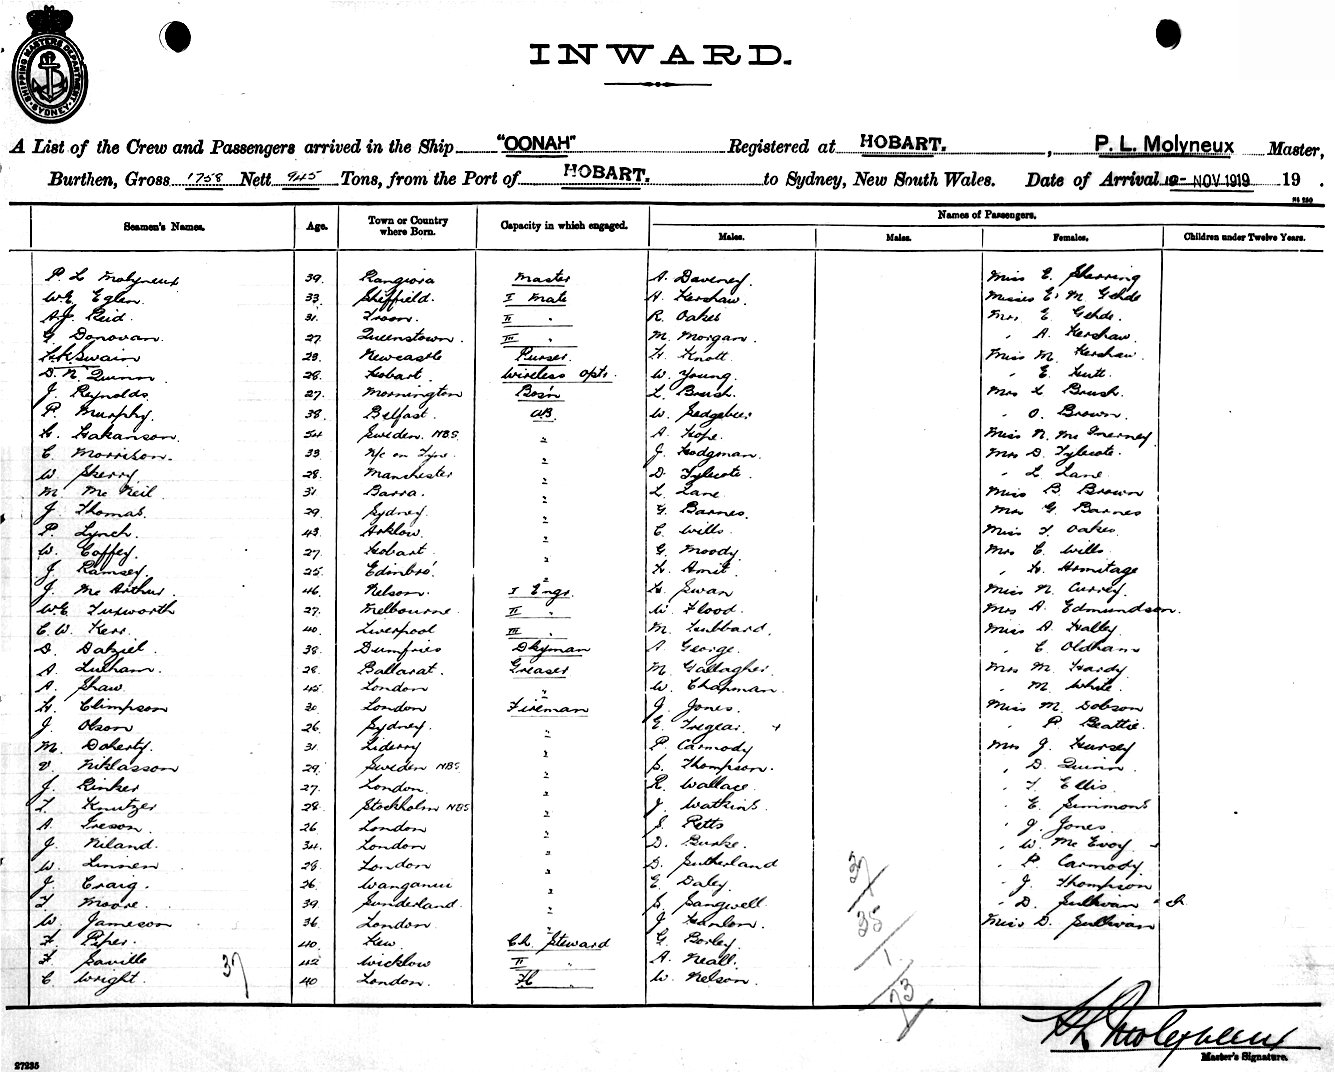 SHIPPING MASTERS DEPARTMENT SYDNEY
INWARD.
A List of the Crew and Passengers arrived in the Ship "OONAH" Registered at HOBART. , P. L. Molyneux Master,
Burthen, Gross 1758 Nett 945 Tons, from the Port of HOBART. to Sydney, New South Wales. Date of Arrival 10- NOV 1919 19 .
Seamen's Names. Age. Town or Country where Born. Capacity in which engaged. Names of Passengers.
Males. Males. Females. Children under Twelve Years.
P. L Molyneux 39. Rangiora Master A. Daveney. Miss E. Skerring
W.E Eglen. 33 Sheffield. I Mate A. Kershaw. Misses E. M Gehde
A.J. Reid. 31. Troon. II " R. Oakes Mrs E Gehde.
G. Donovan. 27 Queenstown. III " M. Morgan. " A. Kershaw.
H.K Swain 23. Newcastle Purser. H. Knott Miss M. Kershaw.
D. N. Quinn 28. Hobart. Wireless Optr. W. Young. " E. Tutt.
J. Reynolds. 27. Mornington Bos'n L. Brush. Mrs L Brush.
P. Murphy. 38 Belfast. AB. W. " O. Brown.
H. Hakanson. 54 Sweden. NBS. " A. Hope. Miss N. Mc Inerney.
C. Morrison. 33 N/c on Tyne. " J. Hodgman. Mrs D. Tylecote.
W. Skerry. 28. Manchester " D. Tylecote. " L. Lane.
M. Mc Neil. 31 Barra. " L. Lane. Miss B. Brown
J. Thomas. 29. Sydney. " G. Barnes. Mrs G. Barnes
P. Lynch. 43. Arklow. " C. Wills. Miss F. Oakes
W. Coffey. 27. Hobart. " G. Moody Mrs C. Wills.
J. Ramsey. 25. Edinbro'. " H. Smit. " H. Armitage
J. Mc Arthur. 46. Nelson. I Engr. H. Swan Miss N. Currey.
W.E. Tuxworth 27. Melbourne. II " W. Flood. Mrs A. Edmundson.
C. W. Kerr. 40. Liverpool III " M. Hubbard. Miss A. Halley.
D. Dalziel. 38. Dumfries Dkyman A. George. " C. Oldham
A. Lutham. 28. Ballarat. Greaser M. Gallagher. Mrs M. Hardy
A. Shaw. 45. London " W. Chapman. " M. White.
H. Climpson 30 London Fireman J. Jones. Miss M. Dobson
J. Olson 26 Sydney. " E. Tregear. " P. Beattie.
M. Doherty. 31. L'derry " P. Carmody Mrs J. Hursey
V. Niklasson 29. Sweden NBS. " S. Thompson. " D. Quinn.
J. Rinker 27. London. " R. Wallace. " F. Ellis.
F. Knutzer 28. Stockholm NBS " J. Watkins. " E. Simmons
A. Greson. 26 London " S. Petts " J. Jones.
J. Niland. 34. London " D. Burke. " W. Mc Evoy
W. Linnen 28. London " D. Sutherland " P. Carmody.
J. Craig. 26. Wanganui " E. Daley. " J. Thompson
F. Moore. 39 Sunderland. " S. Sangwell. " D. Sullivan
W. Jameson 36 London. " J. Hanlon. Miss D. Sullivan
F. Piper. 40. Kew. Ch. Steward G. Borley.
F. Saville 42 Wicklow II " A. Neall.
C Wright. 40 London. FC " W. Nelson.
37
37
35
1
73
P L Molyneux
Master's Signature.
27235